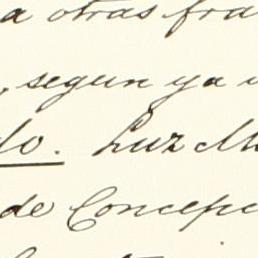 a otras fra
, segun ya
do. Luz M
de Concepc